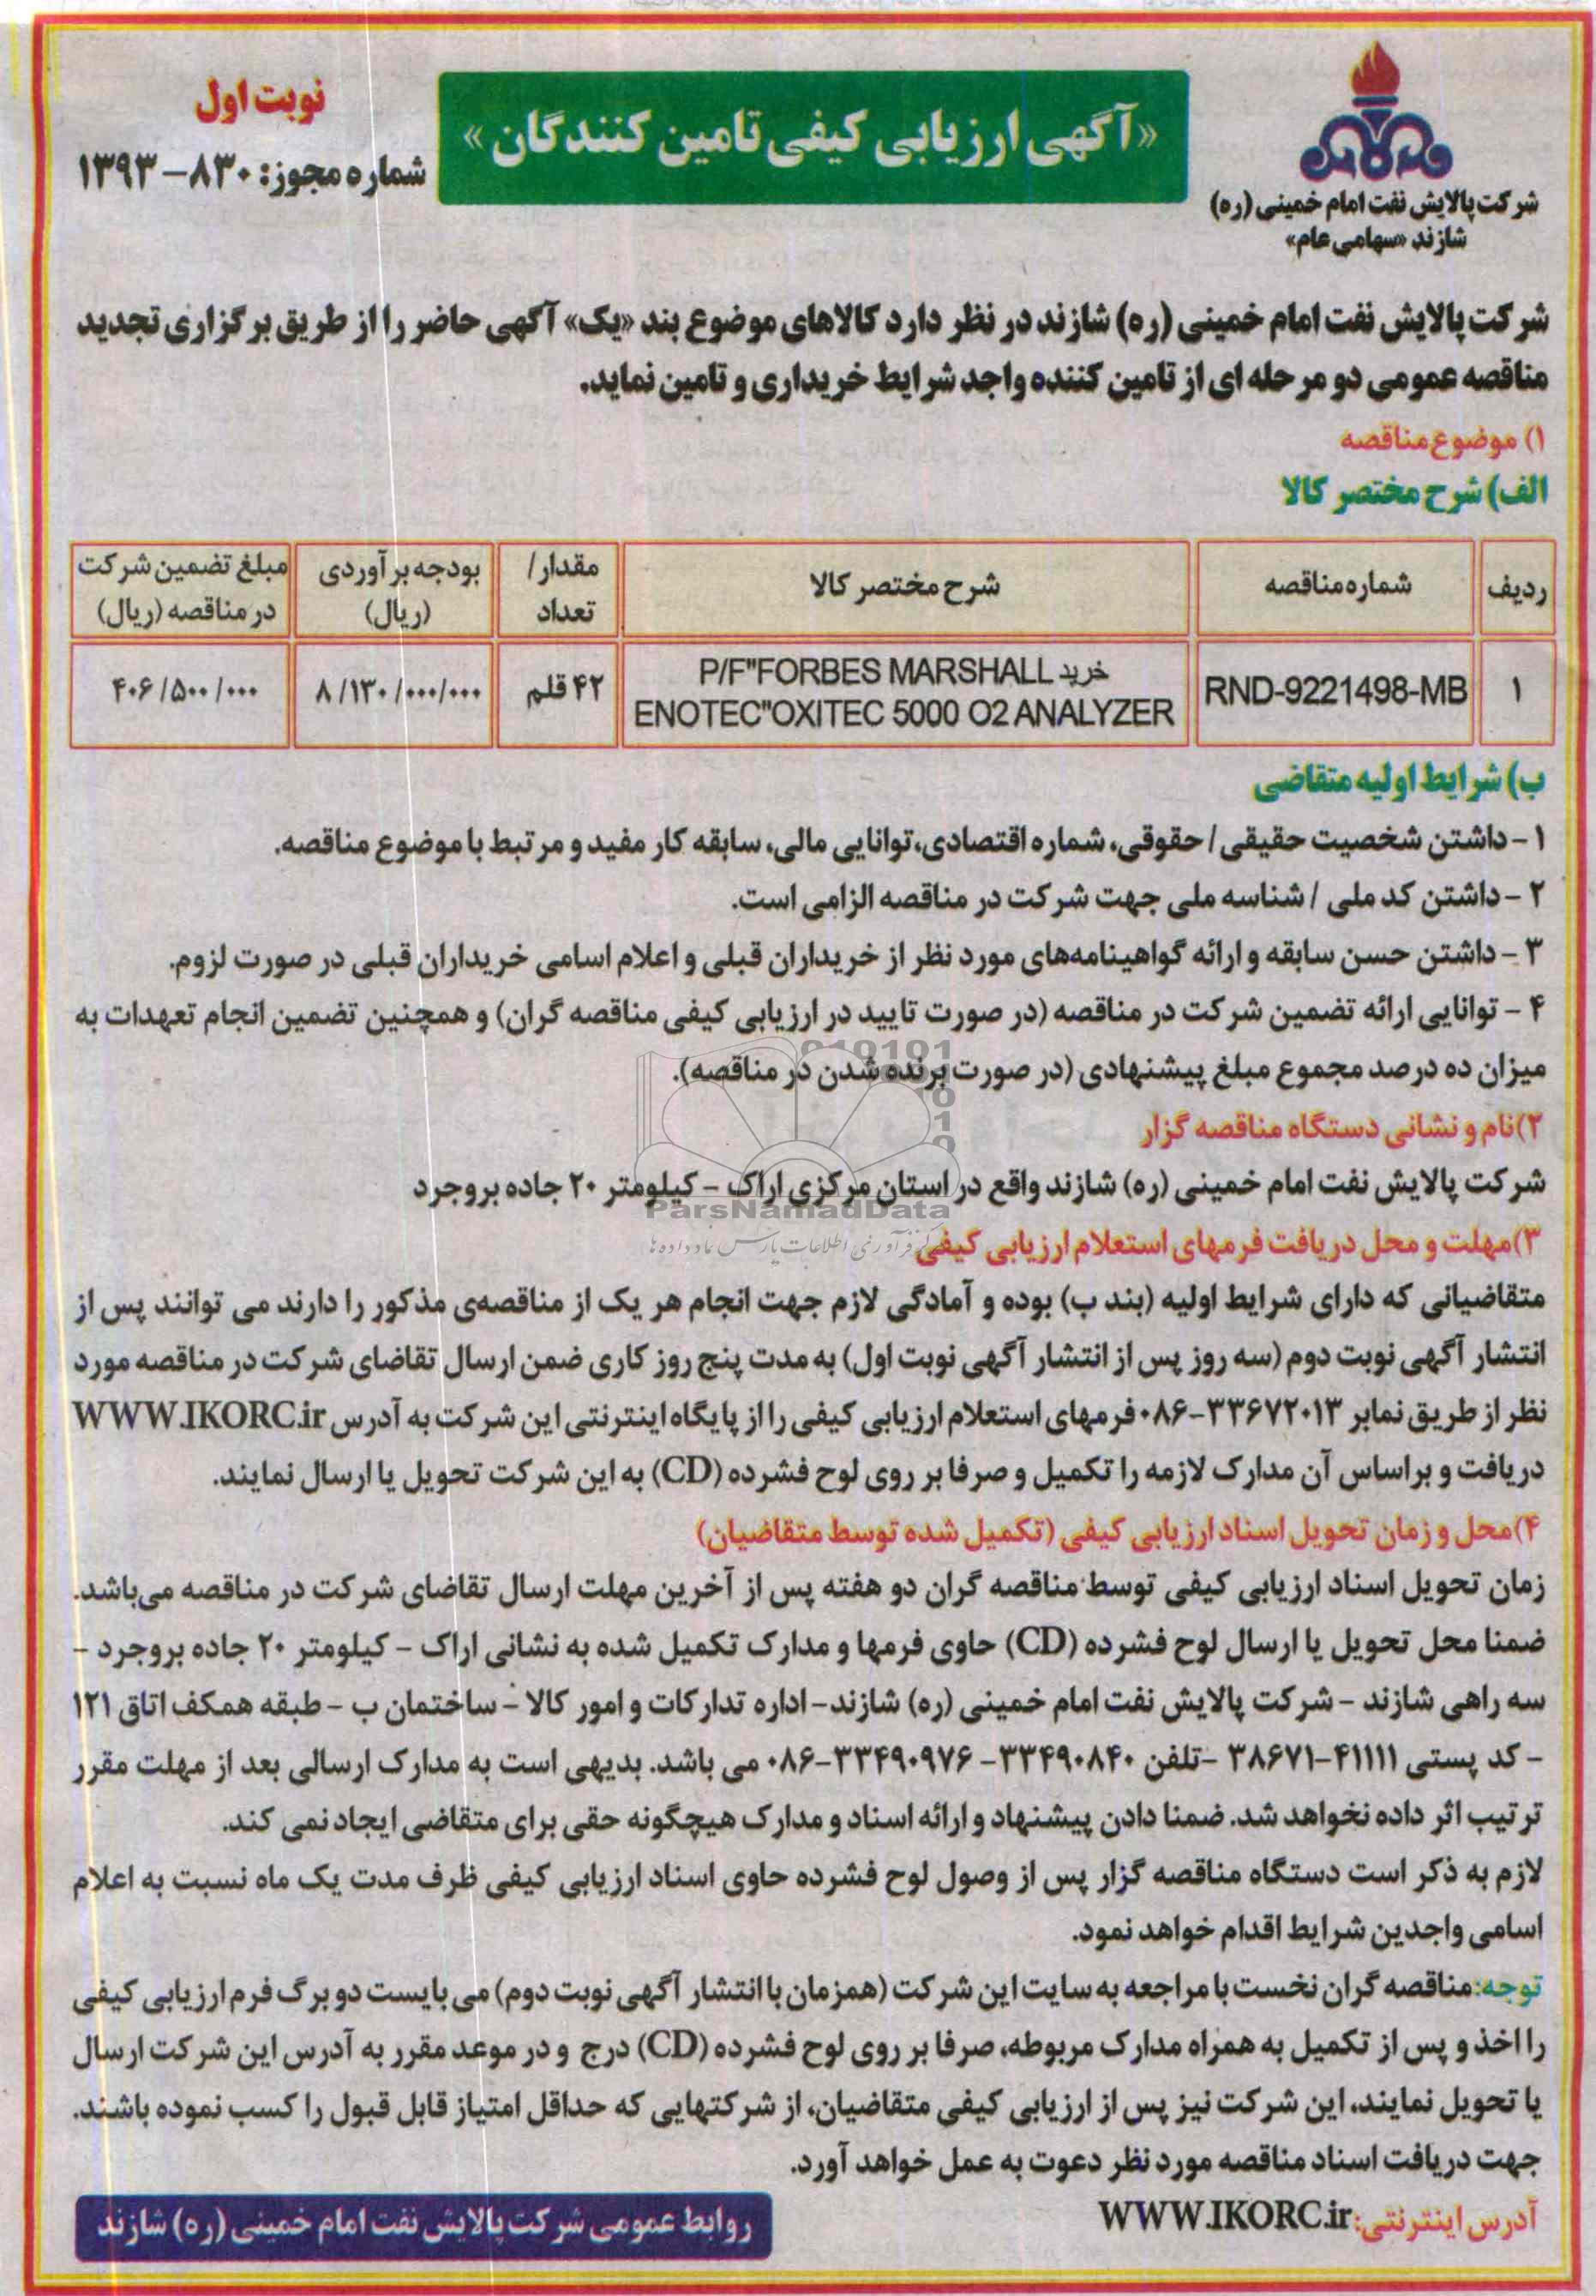 نوبت اول
«آگهی ارزیابی کیفی تامین کنندگان»
شماره مجوز: ۸۳۰-۱۳۹۳
شرکت پالایش نفت امام خمینی (ره)
شازند «سهامی عام»
شرکت پالایش نفت امام خمینی (ره) شازند در نظر دارد کالاهای موضوع بند «یک» آگهی حاضر را از طریق برگزاری تجدید
مناقصه عمومی دو مرحله ای از تامین کننده واجد شرایط خریداری و تامین نماید.
۱) موضوع مناقصه
الف) شرح مختصر کالا
ردیف شماره مناقصه شرح مختصر کالا مقدار/ تعداد بودجه برآوردی (ریال) مبلغ تضمین شرکت در مناقصه (ریال)
۱ RND-9221498-MB خرید P/F"FORBES MARSHALL ENOTEC"OXITEC 5000 O2 ANALYZER ۴۲ قلم ۸/۱۳۰/۰۰۰/۰۰۰ ۴۰۶/۵۰۰/۰۰۰
ب) شرایط اولیه متقاضی
۱ - داشتن شخصیت حقیقی / حقوقی، شماره اقتصادی، توانایی مالی، سابقه کار مفید و مرتبط با موضوع مناقصه.
۲ - داشتن کد ملی / شناسه ملی جهت شرکت در مناقصه الزامی است.
۳ - داشتن حسن سابقه و ارائه گواهینامه‌های مورد نظر از خریداران قبلی و اعلام اسامی خریداران قبلی در صورت لزوم.
۴ - توانایی ارائه تضمین شرکت در مناقصه (در صورت تایید در ارزیابی کیفی مناقصه گران) و همچنین تضمین انجام تعهدات به
میزان ده درصد مجموع مبلغ پیشنهادی (در صورت برنده شدن در مناقصه).
۲)نام و نشانی دستگاه مناقصه گزار
شرکت پالایش نفت امام خمینی (ره) شازند واقع در استان مرکزی اراک - کیلومتر ۲۰ جاده بروجرد
ParsNamadData
۳)مهلت و محل دریافت فرمهای استعلام ارزیابی کیفی
متقاضیانی که دارای شرایط اولیه (بند ب) بوده و آمادگی لازم جهت انجام هر یک از مناقصه‌ی مذکور را دارند می توانند پس از
انتشار آگهی نوبت دوم (سه روز پس از انتشار آگهی نوبت اول) به مدت پنج روز کاری ضمن ارسال تقاضای شرکت در مناقصه مورد
نظر از طریق نمابر ۳۳۶۷۲۰۱۳-۰۸۶ فرمهای استعلام ارزیابی کیفی را از پایگاه اینترنتی این شرکت به آدرس WWW.IKORC.ir
دریافت و براساس آن مدارک لازمه را تکمیل و صرفا بر روی لوح فشرده (CD) به این شرکت تحویل یا ارسال نمایند.
۴)محل و زمان تحویل اسناد ارزیابی کیفی (تکمیل شده توسط متقاضیان)
زمان تحویل اسناد ارزیابی کیفی توسط مناقصه گران دو هفته پس از آخرین مهلت ارسال تقاضای شرکت در مناقصه می‌باشد.
ضمنا محل تحویل یا ارسال لوح فشرده (CD) حاوی فرمها و مدارک تکمیل شده به نشانی اراک - کیلومتر ۲۰ جاده بروجرد -
سه راهی شازند - شرکت پالایش نفت امام خمینی (ره) شازند- اداره تدارکات و امور کالا - ساختمان ب - طبقه همکف اتاق ۱۲۱
- کد پستی ۴۱۱۱۱-۳۸۶۷۱ -تلفن ۳۳۴۹۰۸۴۰- ۳۳۴۹۰۹۷۶-۰۸۶ می باشد. بدیهی است به مدارک ارسالی بعد از مهلت مقرر
ترتیب اثر داده نخواهد شد. ضمنا دادن پیشنهاد و ارائه اسناد و مدارک هیچگونه حقی برای متقاضی ایجاد نمی کند.
لازم به ذکر است دستگاه مناقصه گزار پس از وصول لوح فشرده حاوی اسناد ارزیابی کیفی ظرف مدت یک ماه نسبت به اعلام
اسامی واجدین شرایط اقدام خواهد نمود.
توجه: مناقصه گران نخست با مراجعه به سایت این شرکت (همزمان با انتشار آگهی نوبت دوم) می بایست دو برگ فرم ارزیابی کیفی
را اخذ و پس از تکمیل به همراه مدارک مربوطه، صرفا بر روی لوح فشرده (CD) درج و در موعد مقرر به آدرس این شرکت ارسال
یا تحویل نمایند، این شرکت نیز پس از ارزیابی کیفی متقاضیان، از شرکتهایی که حداقل امتیاز قابل قبول را کسب نموده باشند.
جهت دریافت اسناد مناقصه مورد نظر دعوت به عمل خواهد آورد.
آدرس اینترنتی: WWW.IKORC.ir
روابط عمومی شرکت پالایش نفت امام خمینی (ره) شازند